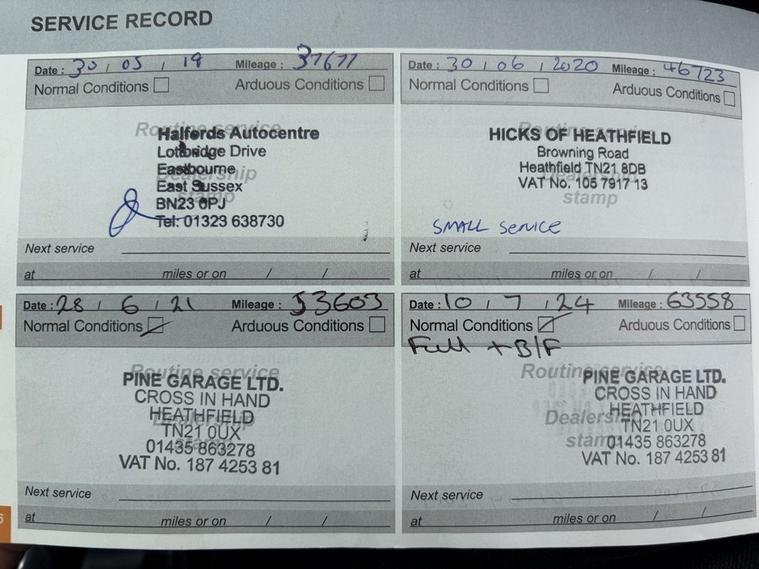 SERVICE RECORD
Date : 30 / 05 / 19 Mileage : 37677
Normal Conditions Arduous Conditions
Routine service
Halfords Autocentre
Lottbridge Drive
Eastbourne
Dealership
East Sussex
stamp
BN23 6PJ
Tel: 01323 638730
Next service
at miles or on / /
Date : 30 / 06 / 2020 Mileage : 46723
Normal Conditions Arduous Conditions
HICKS OF HEATHFIELD
Browning Road
Heathfield TN21 8DB
VAT No. 105 7917 13
stamp
SMALL SERVICE
Next service
at miles or on / /
Date : 28 / 6 / 21 Mileage : 53603
Normal Conditions Arduous Conditions
Routine service
PINE GARAGE LTD.
CROSS IN HAND
HEATHFIELD
TN21 0UX
01435 863278
VAT No. 187 4253 81
Next service
at miles or on / /
Date : 10 / 7 / 24 Mileage : 63558
Normal Conditions Arduous Conditions
Full + B/F
Routine service
PINE GARAGE LTD.
CROSS IN HAND
Dealership
HEATHFIELD
TN21 0UX
stamp
01435 863278
VAT No. 187 4253 81
Next service
at miles or on / /